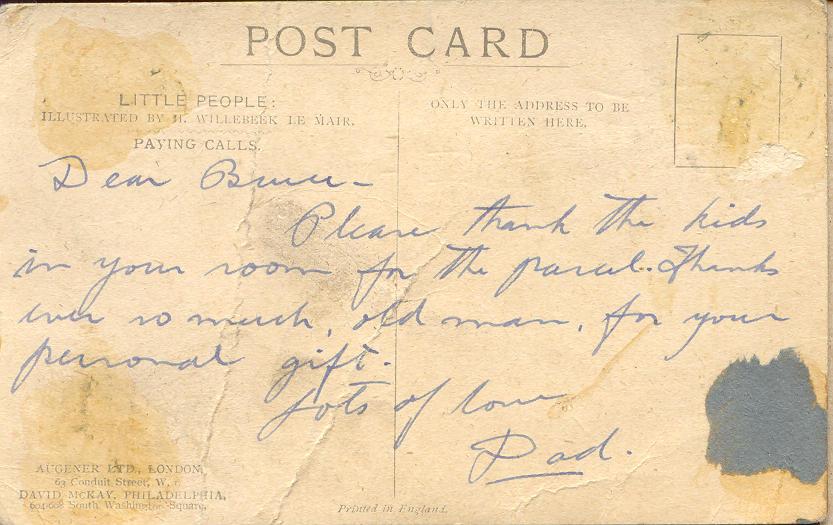 POST CARD
LITTLE PEOPLE:
ILLUSTRATED BY H. WILLEBEEK LE MAIR.
PAYING CALLS.
ONLY THE ADDRESS TO BE
WRITTEN HERE.
Dear Bruce –
Please thank the kids
in your room for the parcel. Thanks
ever so much, old man, for your
personal gift.
Lots of love
Dad.
AUGENER LTD., LONDON,
63 Conduit Street, W. 1
DAVID McKAY, PHILADELPHIA,
604-608 South Washington Square.
Printed in England.